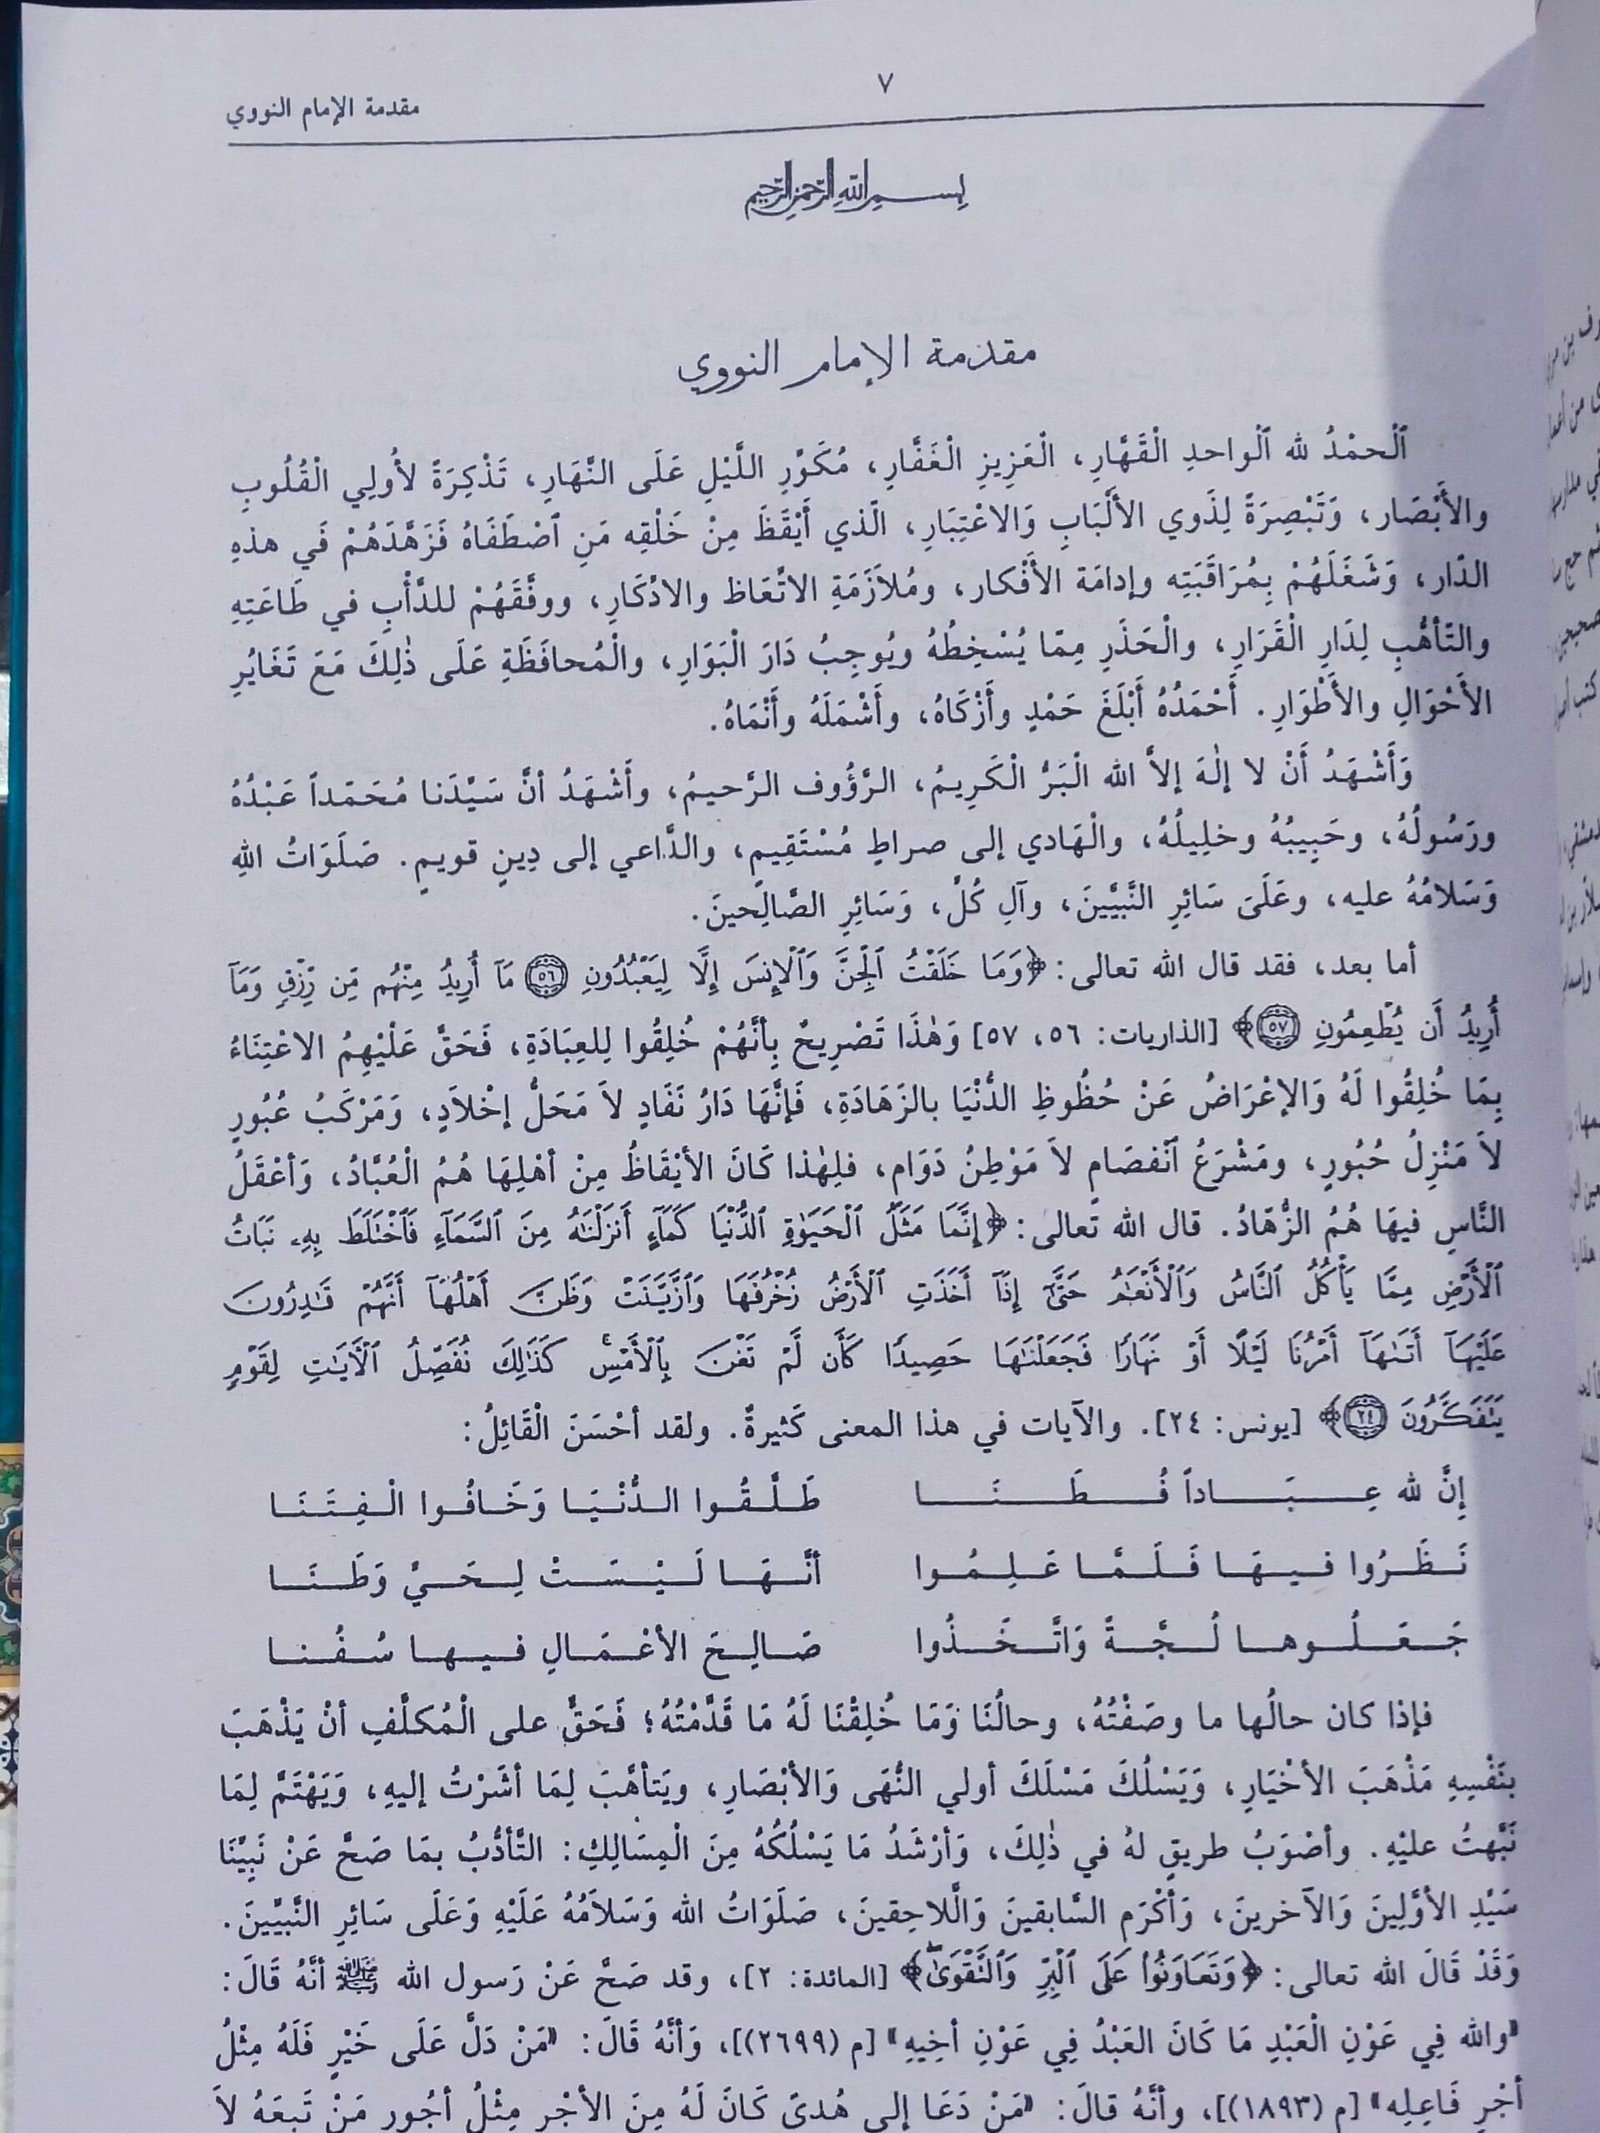 ٧
مقدمة الإمام النووي
بسم الله الرحمن الرحيم
مقدمة الإمام النووي
ٱلْحمْدُ لله ٱلْواحدِ الْقَهَّارِ، الْعَزِيزِ الْغَفَّارِ، مُكَوِّرِ اللَّيْلِ عَلَى النَّهَارِ، تَذْكِرَةً لأُولِي الْقُلُوبِ
والأَبْصَارِ، وَتَبْصِرَةً لِذَوي الأَلْبَابِ وَالاعْتِبَارِ، الّذي أَيْقَظَ مِنْ خَلْقِه مَنِ ٱصْطَفَاهُ فَزَهَّدَهُمْ في هذهِ
الدّار، وَشَغَلَهُمْ بِمُرَاقَبَتِه وإدامَة الأَفْكار، ومُلاَزَمَةِ الاتِّعَاظ والادِّكَارِ، ووفَّقَهُمْ للدَّأْبِ في طَاعَتِهِ
والتّأهُّبِ لِدَارِ الْقَرَارِ، والْحَذَرِ مِمّا يُسْخِطُهُ ويُوجِبُ دَارَ الْبَوَارِ، والْمُحافَظَةِ عَلَى ذٰلِكَ مَعَ تَغَايُرِ
الأَحْوَالِ والأَطْوَارِ. أَحْمَدُهُ أَبْلَغَ حَمْدٍ وأَزْكَاهُ، وأَشْمَلَهُ وأَنْمَاهُ.
وَأَشْهَدُ أَنْ لا إلٰهَ إلاَّ الله الْبَرُّ الْكَرِيمُ، الرَّؤُوف الرَّحيمُ، وأَشْهَدُ أنَّ سَيِّدَنا مُحَمّداً عَبْدُهُ
ورَسُولُهُ، وحَبِيبُهُ وخلِيلُهُ، والْهَادي إلى صراطٍ مُسْتَقِيمٍ، والدَّاعي إلى دِينٍ قويمٍ. صَلَوَاتُ اللهِ
وَسَلامُهُ عليه، وعَلَىَ سَائِرِ النَّبيِّينَ، وآلِ كُلٍّ، وَسَائِرِ الصَّالِحينَ.
أما بعد، فقد قال الله تعالى: ﴿وَمَا خَلَقْتُ ٱلْجِنَّ وَٱلْإِنسَ إِلَّا لِيَعْبُدُونِ ٥٦ مَآ أُرِيدُ مِنْهُم مِّن رِّزْقٍ وَمَآ
أُرِيدُ أَن يُطْعِمُونِ ٥٧﴾ [الذاريات: ٥٦، ٥٧] وَهٰذَا تَصْرِيحٌ بِأَنَّهُمْ خُلِقُوا لِلعِبَادَةِ، فَحَقَّ عَلَيْهِمُ الاعْتِنَاءُ
بِمَا خُلِقُوا لَهُ وَالإعْرَاضُ عَنْ حُظُوظِ الدُّنْيَا بالزَهَادَةِ، فَإنَّهَا دَارُ نَفَادٍ لاَ مَحَلُّ إخْلاَدٍ، وَمَرْكَبُ عُبُورٍ
لاَ مَنْزِلُ حُبُورٍ، ومَشْرَعُ ٱنْفصَامٍ لاَ مَوْطِنُ دَوَامٍ، فلِهٰذا كَانَ الأيْقَاظُ مِنْ أهْلِهَا هُمُ الْعُبَّادُ، وَأعْقَلُ
النَّاسِ فيهَا هُمُ الزُّهّادُ. قال الله تعالى: ﴿إِنَّمَا مَثَلُ ٱلْحَيَوٰةِ ٱلدُّنْيَا كَمَآءٍ أَنزَلْنَٰهُ مِنَ ٱلسَّمَآءِ فَٱخْتَلَطَ بِهِۦ نَبَاتُ
ٱلْأَرْضِ مِمَّا يَأْكُلُ ٱلنَّاسُ وَٱلْأَنْعَٰمُ حَتَّىٰٓ إِذَآ أَخَذَتِ ٱلْأَرْضُ زُخْرُفَهَا وَٱزَّيَّنَتْ وَظَنَّ أَهْلُهَآ أَنَّهُمْ قَٰدِرُونَ
عَلَيْهَآ أَتَىٰهَآ أَمْرُنَا لَيْلًا أَوْ نَهَارًا فَجَعَلْنَٰهَا حَصِيدًا كَأَن لَّمْ تَغْنَ بِٱلْأَمْسِ كَذَٰلِكَ نُفَصِّلُ ٱلْءَايَٰتِ لِقَوْمٍ
يَتَفَكَّرُونَ ٢٤﴾ [يونس: ٢٤]. والآيات في هذا المعنى كَثيرةٌ. ولقد أحْسَنَ الْقَائِلُ:
إنَّ لله عِبَاداً فُطَنَا طَلَّقُوا الدُّنْيَا وَخَافُوا الْفِتَنَا
نَظَرُوا فيهَا فَلَمَّا عَلِمُوا أنَّهَا لَيْسَتْ لِحَيٍّ وَطَنَا
جَعَلُوها لُجَّةً وَاتَّخَذُوا صَالِحَ الأعْمَالِ فيها سُفُنا
فإذا كان حالُها ما وصَفْتُهُ، وحالُنَا وَمَا خُلِقْنَا لَهُ مَا قَدَّمْتُهُ؛ فَحَقٌّ على الْمُكلَّفِ أنْ يَذْهَبَ
بنَفْسِهِ مَذْهَبَ الأخْيَارِ، وَيَسْلُكَ مَسْلَكَ أولي النُّهَى وَالأبْصَارِ، ويَتأهَّبَ لِمَا أشَرْتُ إليهِ، وَيَهْتَمَّ لِمَا
نَبَّهتُ عليْهِ. وأصْوَبُ طريقٍ لهُ في ذٰلِكَ، وَأرْشَدُ مَا يَسْلُكُهُ مِنَ الْمِسَالِكِ: التَّأدُّبُ بمَا صَحَّ عَنْ نَبِيِّنَا
سَيِّدِ الأوَّلِينَ وَالآخرينَ، وَأكْرَمِ السَّابقينَ وَالَّلاحِقينَ، صَلَوَاتُ الله وَسَلاَمُهُ عَلَيْهِ وَعَلَى سَائِرِ النَّبيِّينَ.
وَقَدْ قَالَ الله تعالى: ﴿وَتَعَاوَنُوا۟ عَلَى ٱلْبِرِّ وَٱلتَّقْوَىٰ﴾ [المائدة: ٢]، وقد صَحَّ عَنْ رَسول الله ﷺ أنَّهُ قَالَ:
«والله فِي عَوْنِ الْعَبْدِ مَا كَانَ العَبْدُ فِي عَوْنِ أخِيهِ» [م (٢٦٩٩)]، وَأنَّهُ قَالَ: «مَنْ دَلَّ عَلَى خَيْرٍ فَلَهُ مِثْلُ
أجْرِ فَاعِلِه» [م (١٨٩٣)]، وأنَّهُ قالَ: «مَنْ دَعَا إلى هُدىً كَانَ لَهُ مِنَ الأجْرِ مِثْلُ أجُورِ مَنْ تَبِعَهُ لاَ